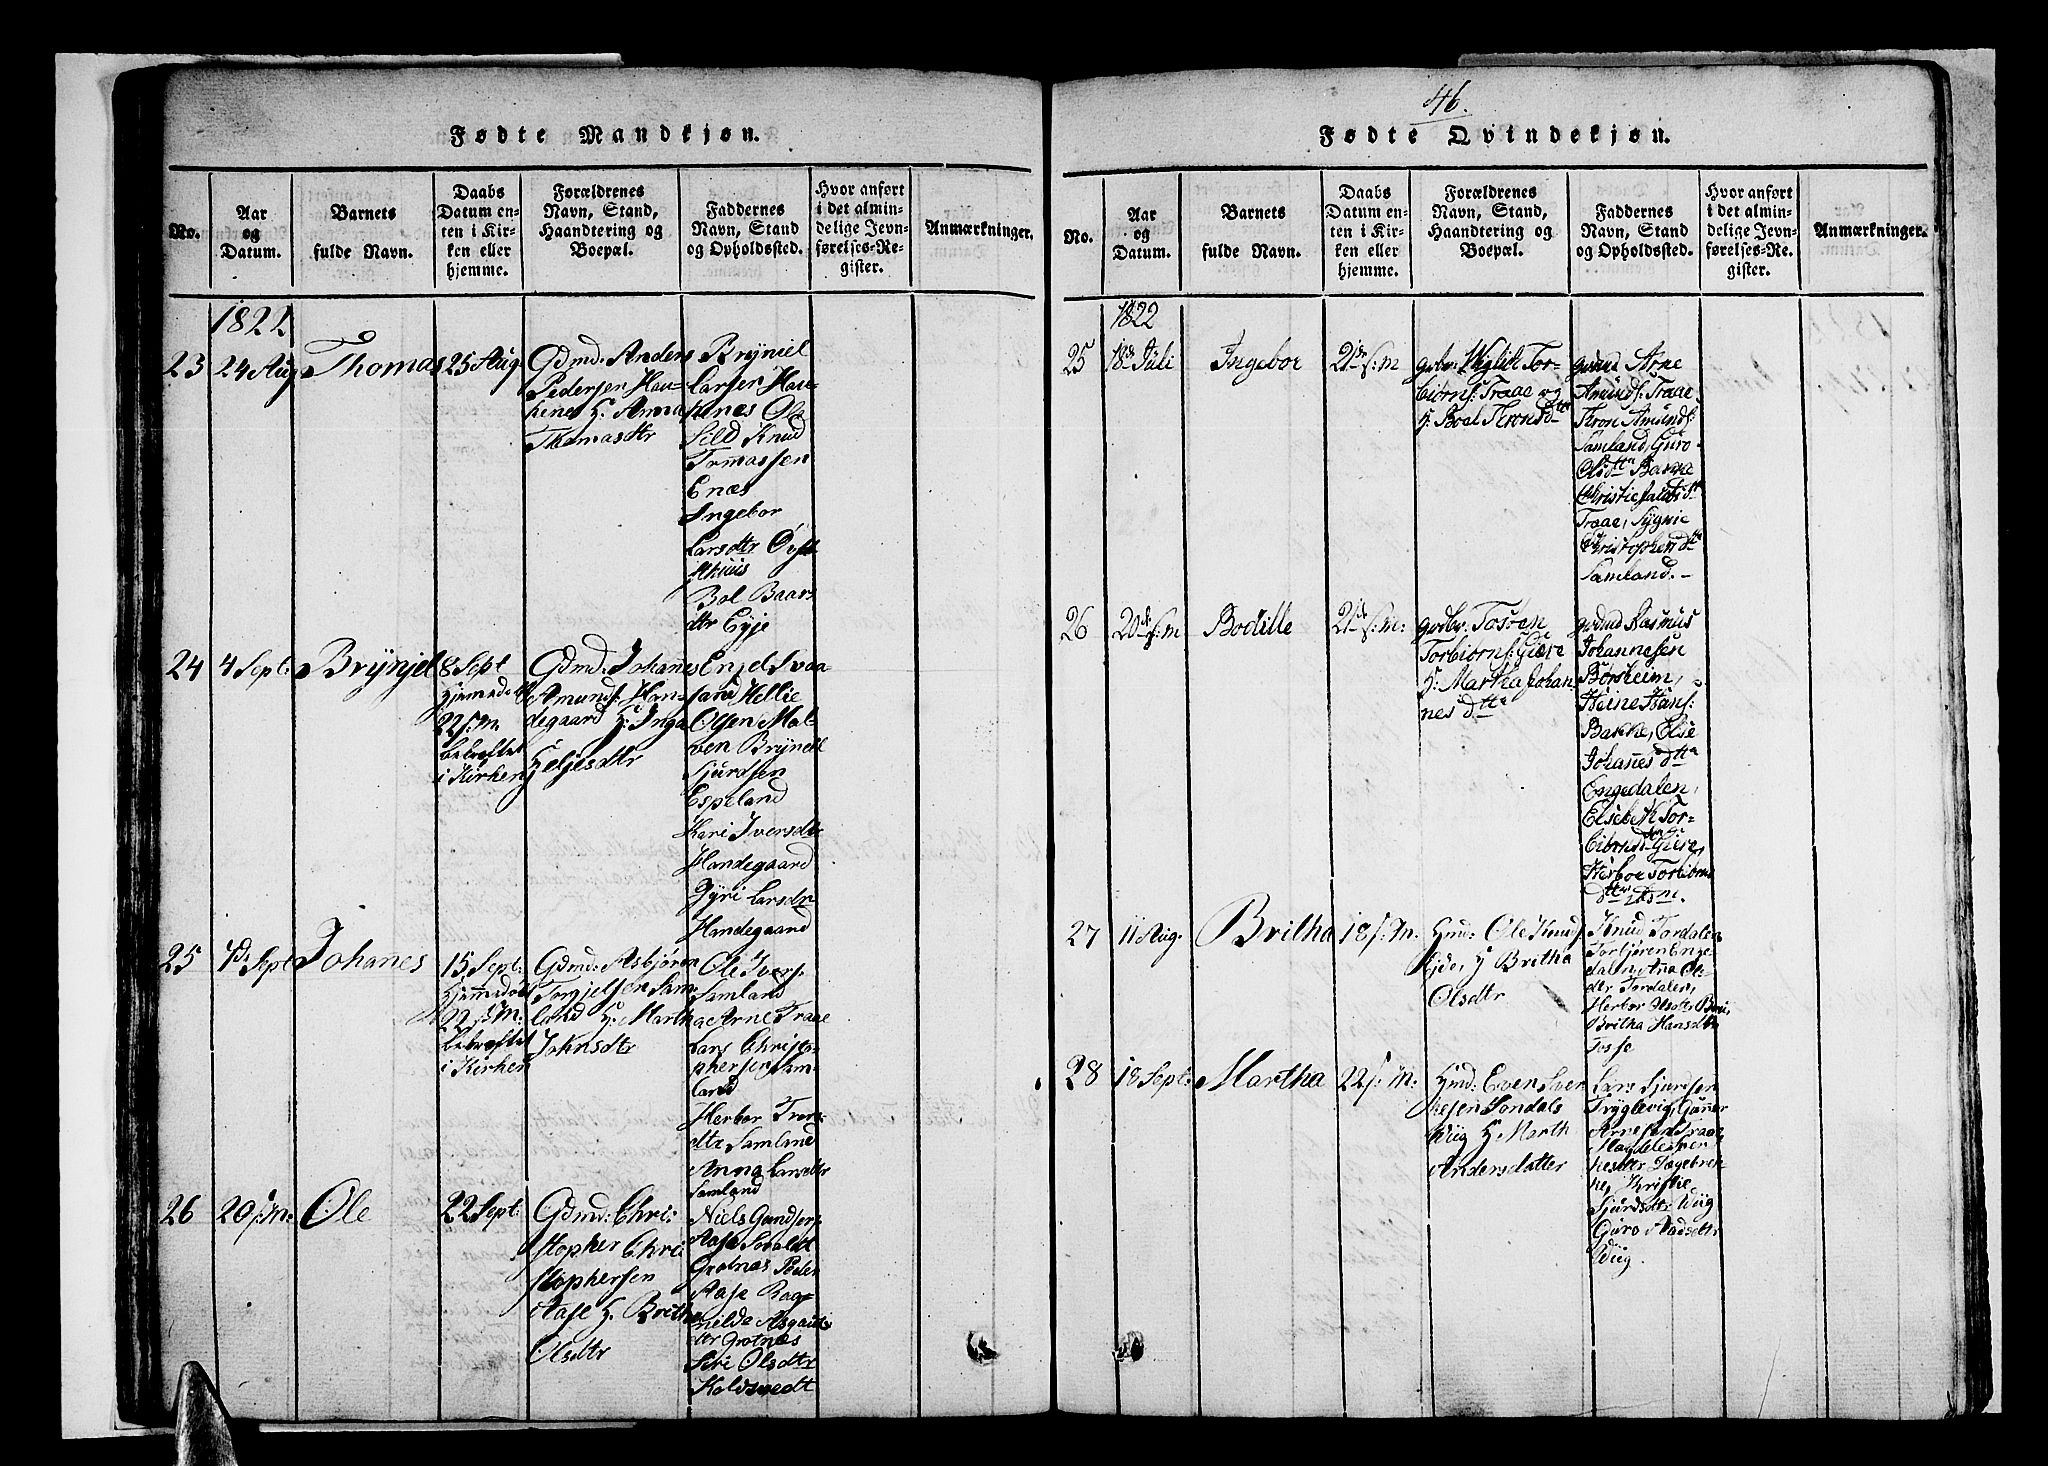 Fødte Mandkjøn.
No.
Aar
og
Datum.
Barnets
fulde Navn.
Daabs
Datum en-
ten i Kir-
ken eller
hjemme.
Forældrenes
Navn, Stand,
Haandtering og
Boepæl.
Faddernes
Navn, Stand
og Opholdssted.
Hvor anført
i det almin-
delige Jevn-
førelses-Re-
gister.
Anmærkninger.
1822
23
24 Aug
Thomas
25 Aug
Gdmd: Anders
Pedersen Hau-
kenes H: Anna
Thomasdtr
Brÿniel
Larsen Hau-
kenes Ole
Sild Knud
Tomassen
Enæs
Ingebor
Larsdtr Øyst
Bol Baars
dtr Eÿe
24
4 Sept:
Brÿnjel
8 Sept
hjemedøbt
22 s: M.
bekræftet
i Kirken
Gdmd: Johanes
Amunds: Han-
degaard H: Inga
Heljesdtr
Enjel Svaa
sand Hellie
Olsen Mal-
ven Brÿnell
Sjurdsen
Espeland
Kari Iversdtr
Handegaard
Gÿri Larsdtr
Handegaard
25
7de Sept
Johanes
15 Sept:
hjemedøbt
22 s: M.
bekræftet
i Kirken
Gdmd: Asbjøren
Torgjelsen Sam-
land H: Martha
Johnsdtr
Ole Ivers:
Samland
Arne Traae
Lars Christo-
phersen Sam-
land
Herbor Trons
dtr Samland
Anna Larsdtr
Samland
26
20 s: M:
Ole
22 Sept:
Gdmd: Chri-
stopher Chri
stophersen
Aase H: Britha
Olsdtr
Niels Gundsers:
Aase
Grotnæs Peder
Aase Rag-
nilda Asgauts
dtr Grotnæs
Siri Olsdtr
Koldsvedt
46.
Fødte Qvindekjøn.
No.
Aar
og
Datum.
Barnets
fulde Navn.
Daabs
Datum en-
ten i Kir-
ken eller
hjemme.
Forældrenes
Navn, Stand,
Haandtering og
Boepæl.
Faddernes
Navn, Stand
og Opholdssted.
Hvor anført
i det almin-
delige Jevn-
førelses-Re-
gister.
Anmærkninger.
1822
25
18de Juli
Ingebor
21de s: m
gdbr: Wiglik Tor-
biørns: Traae og
H: Boel Tronsdtr
gdmd Arne
Amunds: Traae
Tron Amunds:
Samland, Guro
Olsdtr Bakke
Traae, Sygnie
Christophersdtr
Samland. –
26
20de s: m
Bodille
21de s: m:
gdbr: Tosten
Torbiørns: Giære
H: Martha Johan
nesdtr
gdmd Rasmus
Johannesen
Børsheim,
Heine Hans:
Bakke, Else
Johannesdtr
Engedalen,
Elsebeth Tor-
biørnsdtr Giære,
Herboe Torbiørns
dtr ibm.
27
11 Aug.
Britha
18 s: M:
Hmd: Ole Knuds
Eide, H Britha
Olsdtr
Knud Tordalen
Torbjøren Enge
dalen, Ana Ole
dtr Tordalen,
Herbor Olsdtr
Britha Hansdtr
Tosse
28
18 Sept:
Martha
22 s: M:
Hmd: Even Sver
kesen Søndals
Wiig H. Marth
Andersdatter
Lars Sjurdsen
Tryglevig, Gunner
Arnesen Traae,
Magdele Sver
kesdtr Tagebrek
ke, Kristie
Sjursdtr Wiig
Guro Aadsdtr
Wiig.